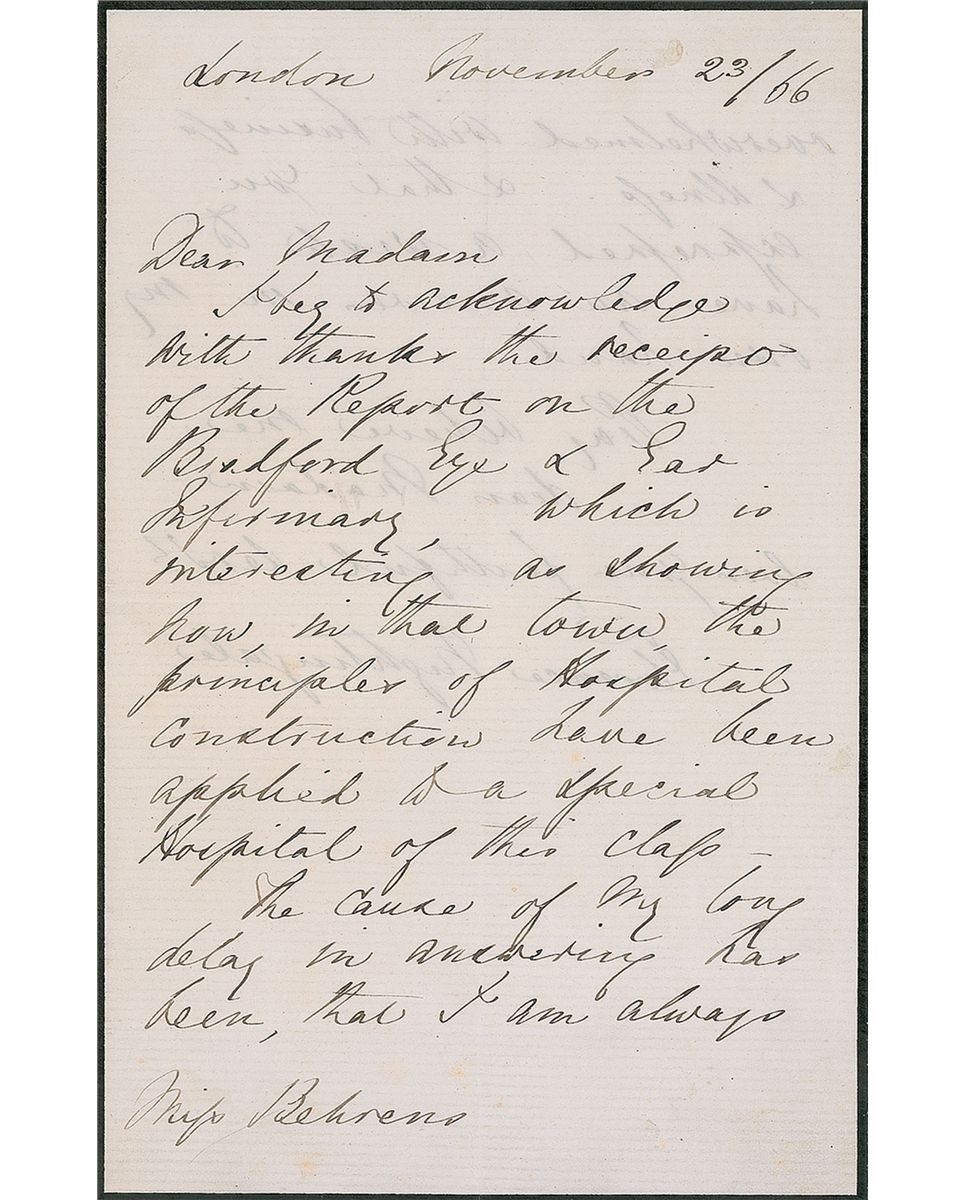 London November 23/66
Dear Madam
I beg to acknowledge
with thanks the receipt
of the Report on the
Bradford Eye & Ear
Infirmary, which is
interesting as showing
how, in that town, the
principles of Hospital
construction have been
applied to a special
Hospital of this class –
The cause of my long
delay in answering has
been, that I am always
Miss Behrens